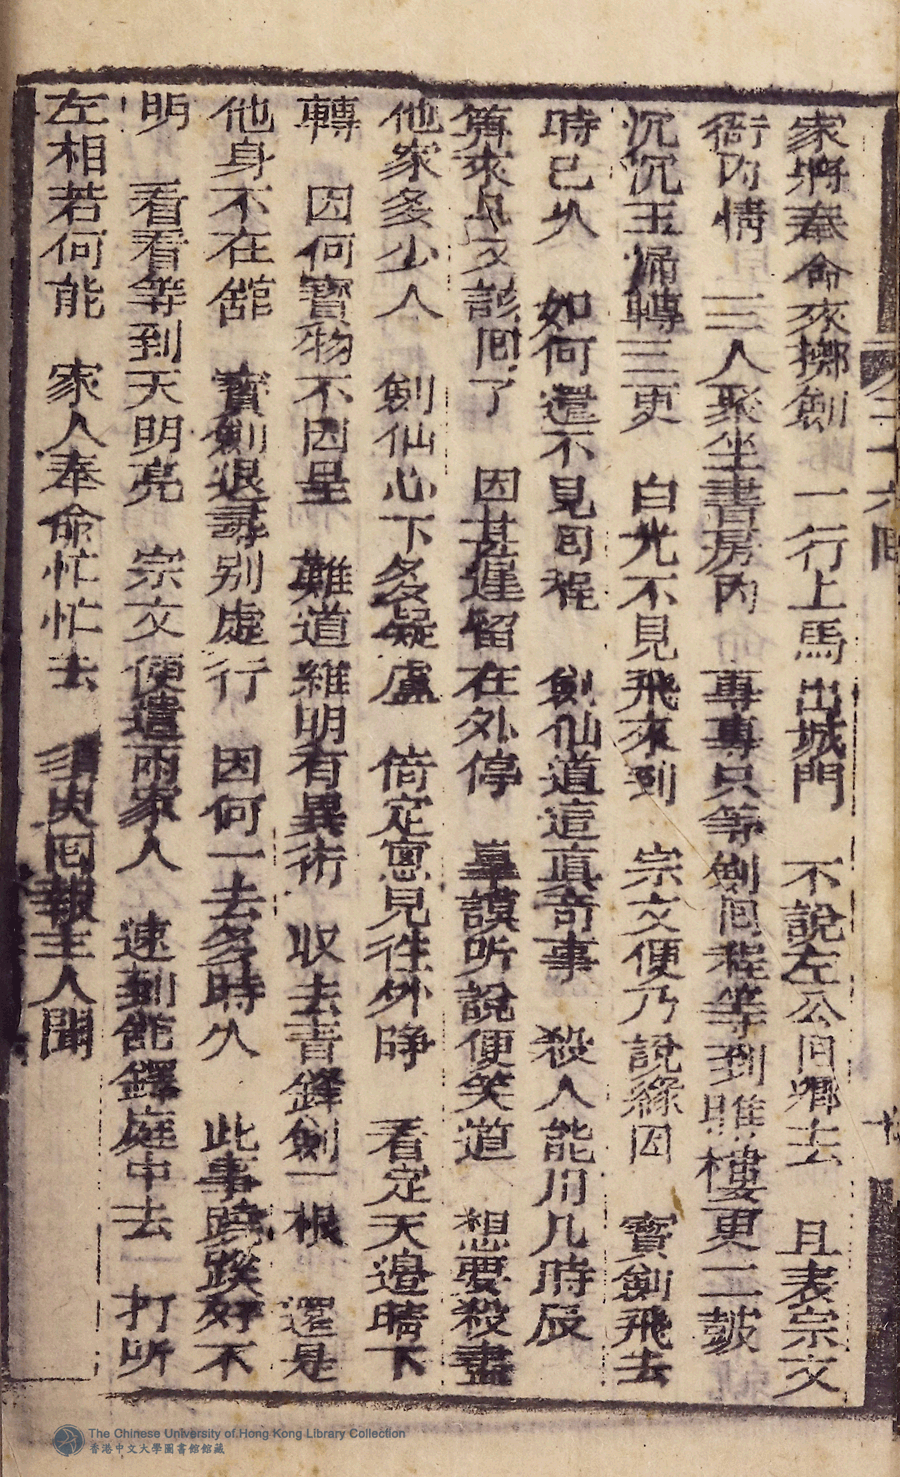 家將奉命來擲劍 一行上馬出城門 不說左公囘鄉去 且表宗文
衙內情 三人聚坐書房內 專專只等劍囘程 等到譙樓更二鼓
沉沉玉漏轉三更 白光不見飛來到 宗文便乃說緣因 寶劍飛去
時已久 如何還不見囘程 劍仙道這真奇事 殺人能用几時辰
算來只文彭囘了 因甚遲留在外停 臯謨听說便笑道 想要殺盡
他家多少人 劍仙心下多疑慮 倚定窻見徃外睁 看定天邉晴下
轉 因何寳物不囘呈 難道維明有異術 収去青鋒劍一根 還是
他身不在舘 寳劍退尋别處行 因何一去多時久 此事蹺蹊好不
明 看看等到天明亮 宗文便遣兩家人 速到能鐸庭中去 打听
左相若何能 家人奉命忙忙去 須臾囘報主人聞
二十六囘
The Chinese University of Hong Kong Library Collection
香港中文大學圖書館館藏